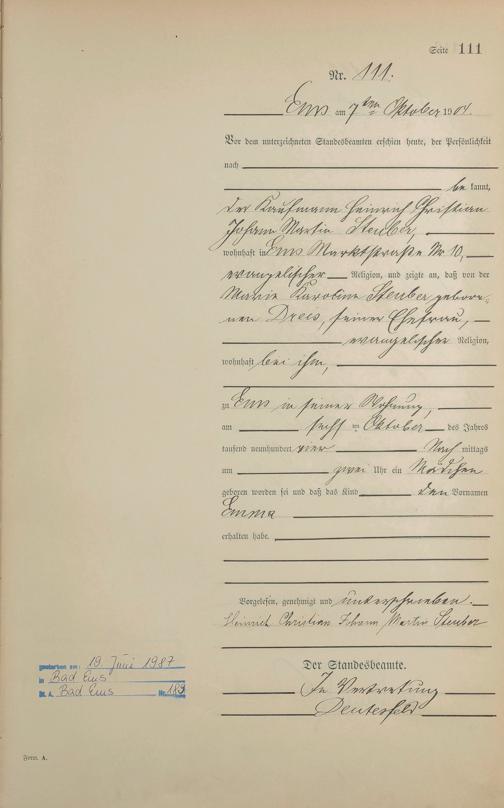 Seite 111
Nr. 111.
Ems am 7ten Oktober 1904.
Vor dem unterzeichneten Standesbeamten erschien heute, der Persönlichkeit
nach
bekannt,
der Kaufmann Heinrich Christian
Johann Martin Steuber,
wohnhaft in Ems Marktstraße Nr 10,
evangelischer Religion, und zeigte an, daß von der
Marie Karoline Steuber gebore-
nen Drees, seiner Ehefrau,
evangelischer Religion,
wohnhaft bei ihm,
zu Ems in seiner Wohnung,
am sechsten Oktober des Jahres
tausend neunhundert vier Nachmittags
um zwei Uhr ein Mädchen
geboren worden sei und daß das Kind den Vornamen
Emma
erhalten habe.
Vorgelesen, genehmigt und unterschrieben.
Heinrich Christian Johann Martin Steuber
Der Standesbeamte.
In Vertretung
gestorben am: 19 Juni 1987
in Bad Ems
St. A. Bad Ems Nr. 189
Form. A.